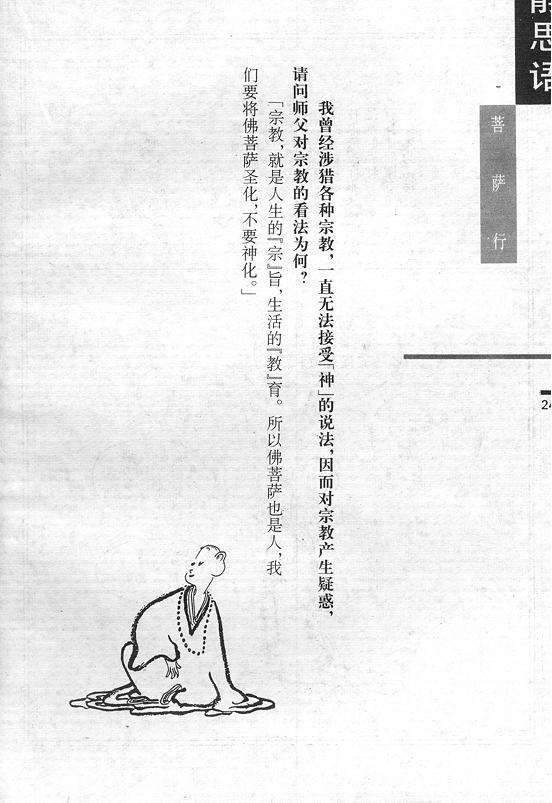 静思语
菩萨行
24
我曾经涉猎各种宗教，一直无法接受「神」的说法，因而对宗教产生疑惑，
请问师父对宗教的看法为何？
「宗教，就是人生的『宗』旨，生活的『教』育。所以佛菩萨也是人，我
们要将佛菩萨圣化，不要神化。」